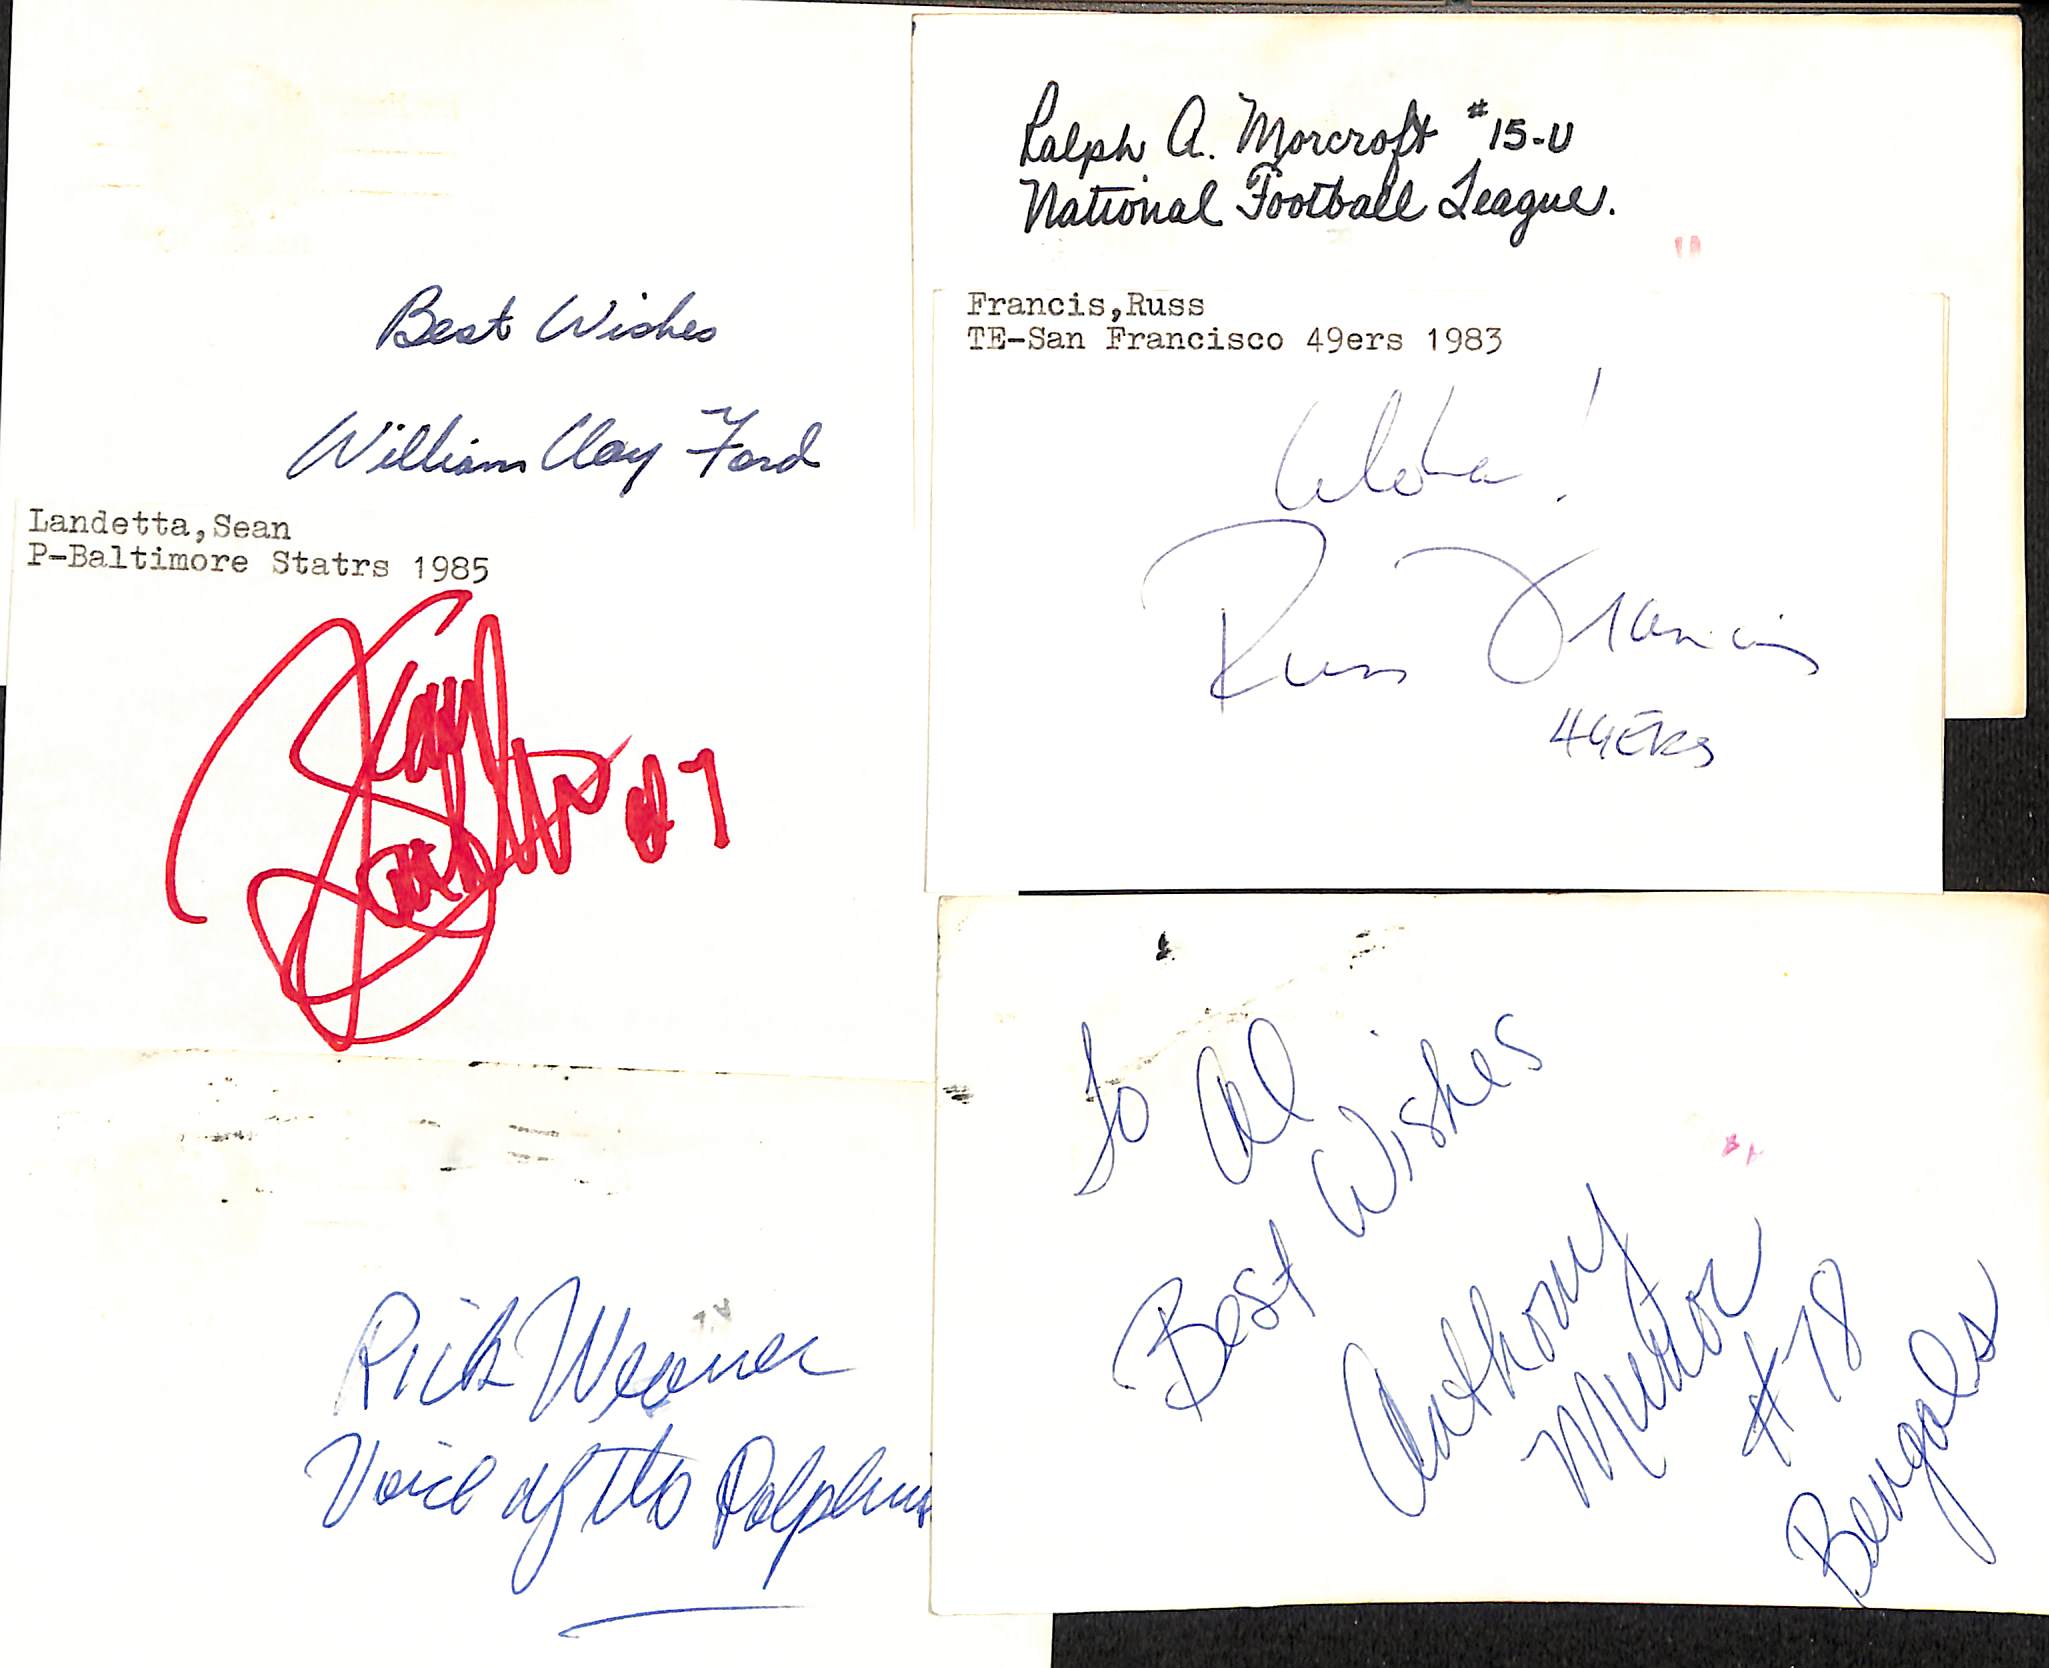 Best Wishes
William Clay Ford
Ralph A. Morcroft #15-U
National Football League.
Landetta,Sean
P-Baltimore Statrs 1985
Sean
Landetta #7
Francis,Russ
TE-San Francisco 49ers 1983
Aloha!
Russ Francis
49ERS
Rick Weaver
Voice of the Dolphins
To Al
Best Wishes
Anthony
Munoz
#78
Bengals